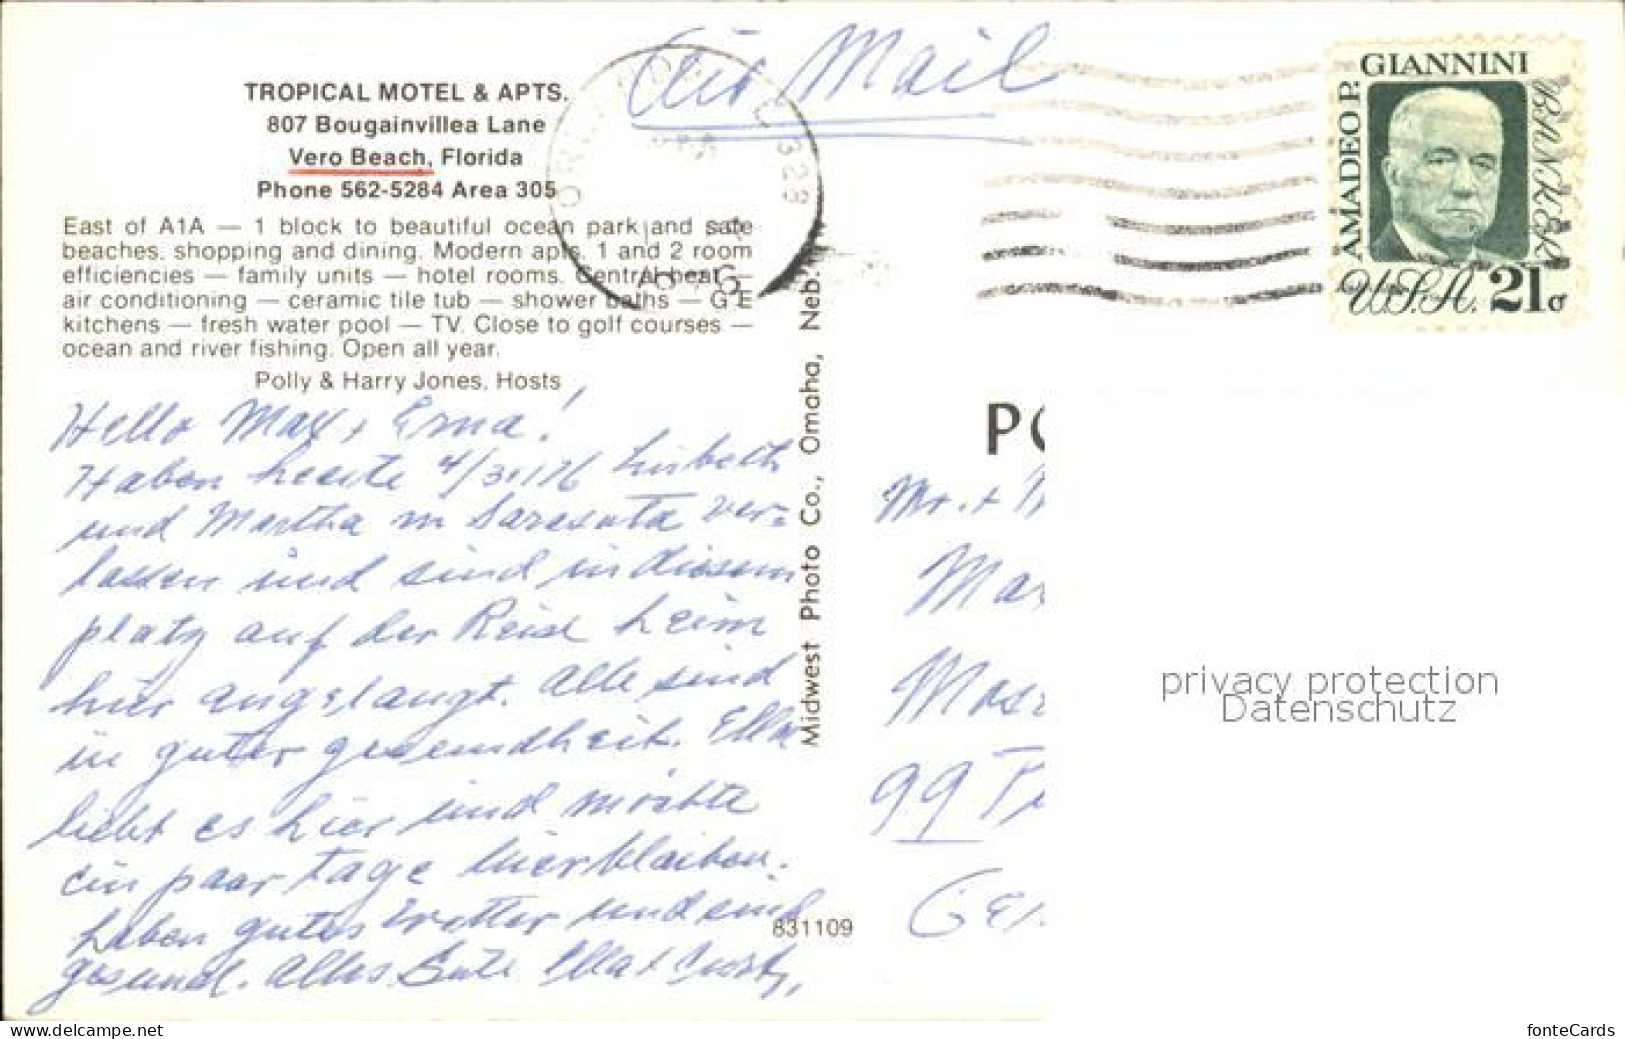 TROPICAL MOTEL & APTS.
807 Bougainvillea Lane
Vero Beach, Florida
Phone 562-5284 Area 305
East of A1A — 1 block to beautiful ocean park and safe
beaches. shopping and dining. Modern apts. 1 and 2 room
efficiencies — family units — hotel rooms. Central heat —
air conditioning — ceramic tile tub — shower baths — G E
kitchens — fresh water pool — TV. Close to golf courses —
ocean and river fishing. Open all year.
Polly & Harry Jones, Hosts
Hello Max + Erna!
Haben heute 4/31/76 Lisbeth
und Martha in Sarasota ver-
lassen und sind in diesem
platz auf der Reise heim
hier angelangt. Alle sind
in guter gesundheit. Ella
liebt es hier und möchte
ein paar tage hierbleiben.
haben gutes Wetter und sind
gesund. Alles Gute Ella +
Midwest Photo Co., Omaha, Neb.
831109
Air Mail
328
1976
AMADEO P. GIANNINI
BANKER
U.S.A. 21c
PO
Mr. +
Ma
Mos
99
Ger
privacy protection
Datenschutz
www.delcampe.net
fonteCards